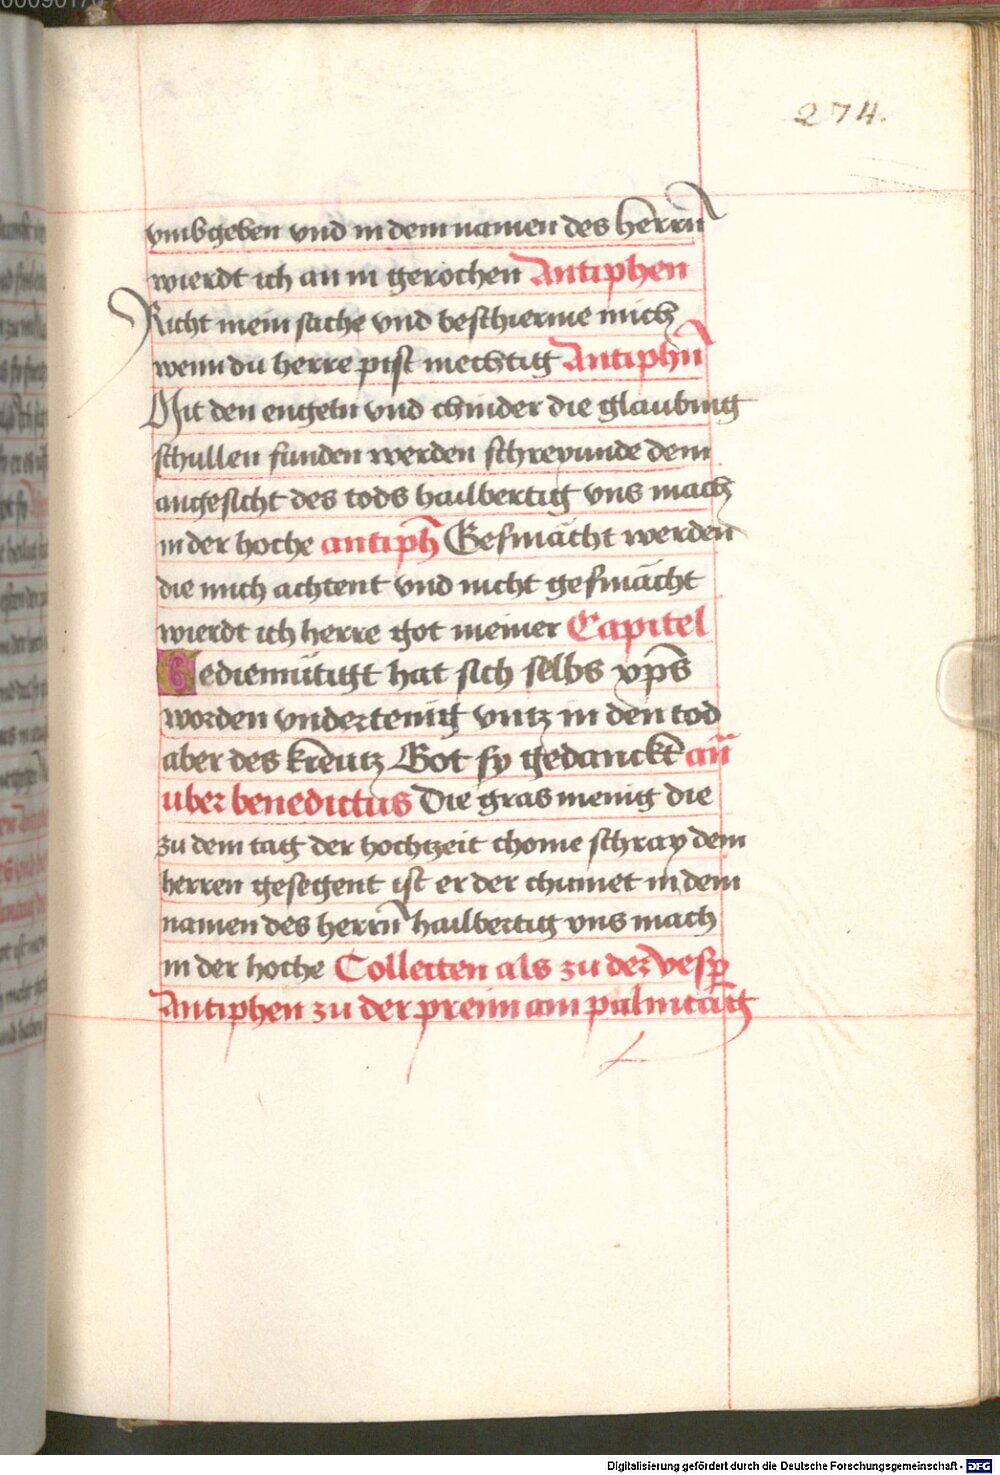 274.
vmbgeben vnd in dem namen des herrn̄
wierdt ich an in gerochen Antiphen
Richt mein sache vnd beschierme mich
wenn du herre pist mechtig Antiphn̄
Mit den engeln vnd chinder die glaubing
schullen funden werden schreyunde dem
angesicht des tods hailbertig vns mach
in der hoche antiph̄ Gesmächt werden
die mich achtent vnd nicht gesmächt
wierdt ich herre got meiner Capitel
Gediemütigt hat sich selbs xp̄s
worden vndertenig vntz in den tod
aber des krewtz Got sy gedanckt an̄
uber benedictus Die gras menig die
zu dem tag der hochzeit chome schray dem
herren gesegent ist er der chumet in dem
namen des herrn̄ hailbertig vns mach
in der hoche Collecten als zu der vesp̄
Antiphen zu der preim am palmtag
Digitalisierung gefördert durch die Deutsche Forschungsgemeinschaft - DFG